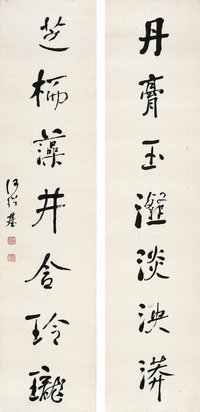 丹膏玉瀣淡泱漭
芝栭藻井含玲瓏
何紹基